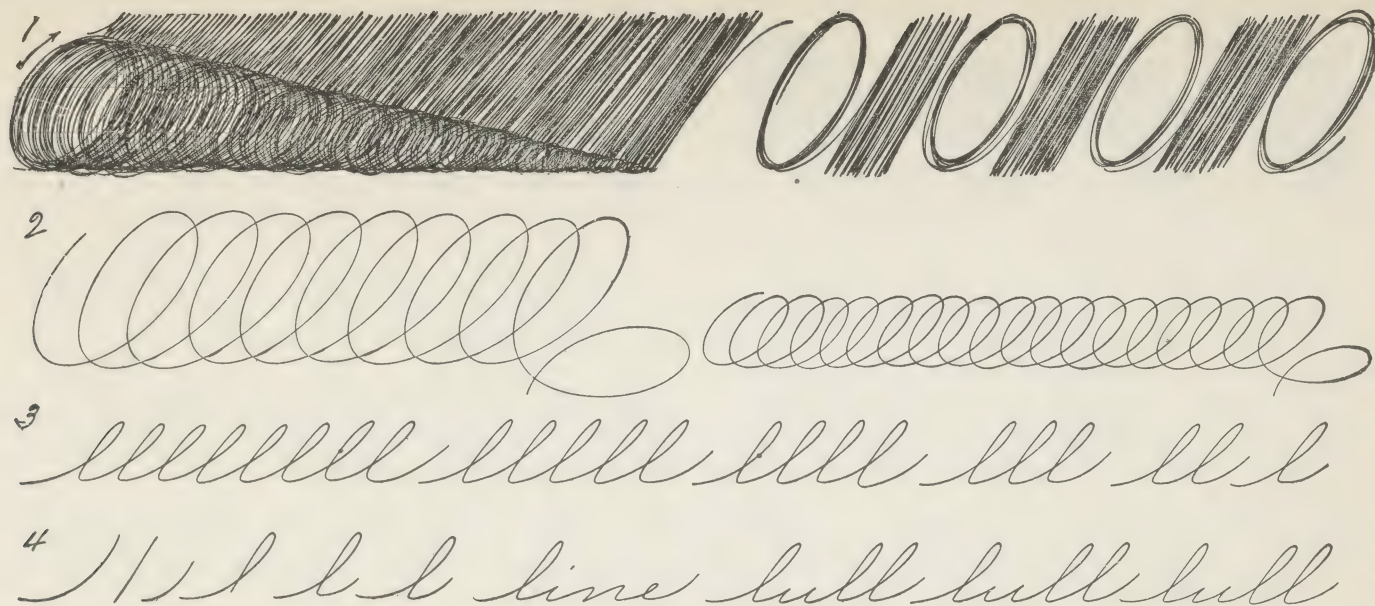 1
2
3 llllllll lllll llll lll ll l
4 l l l line lull lull lull